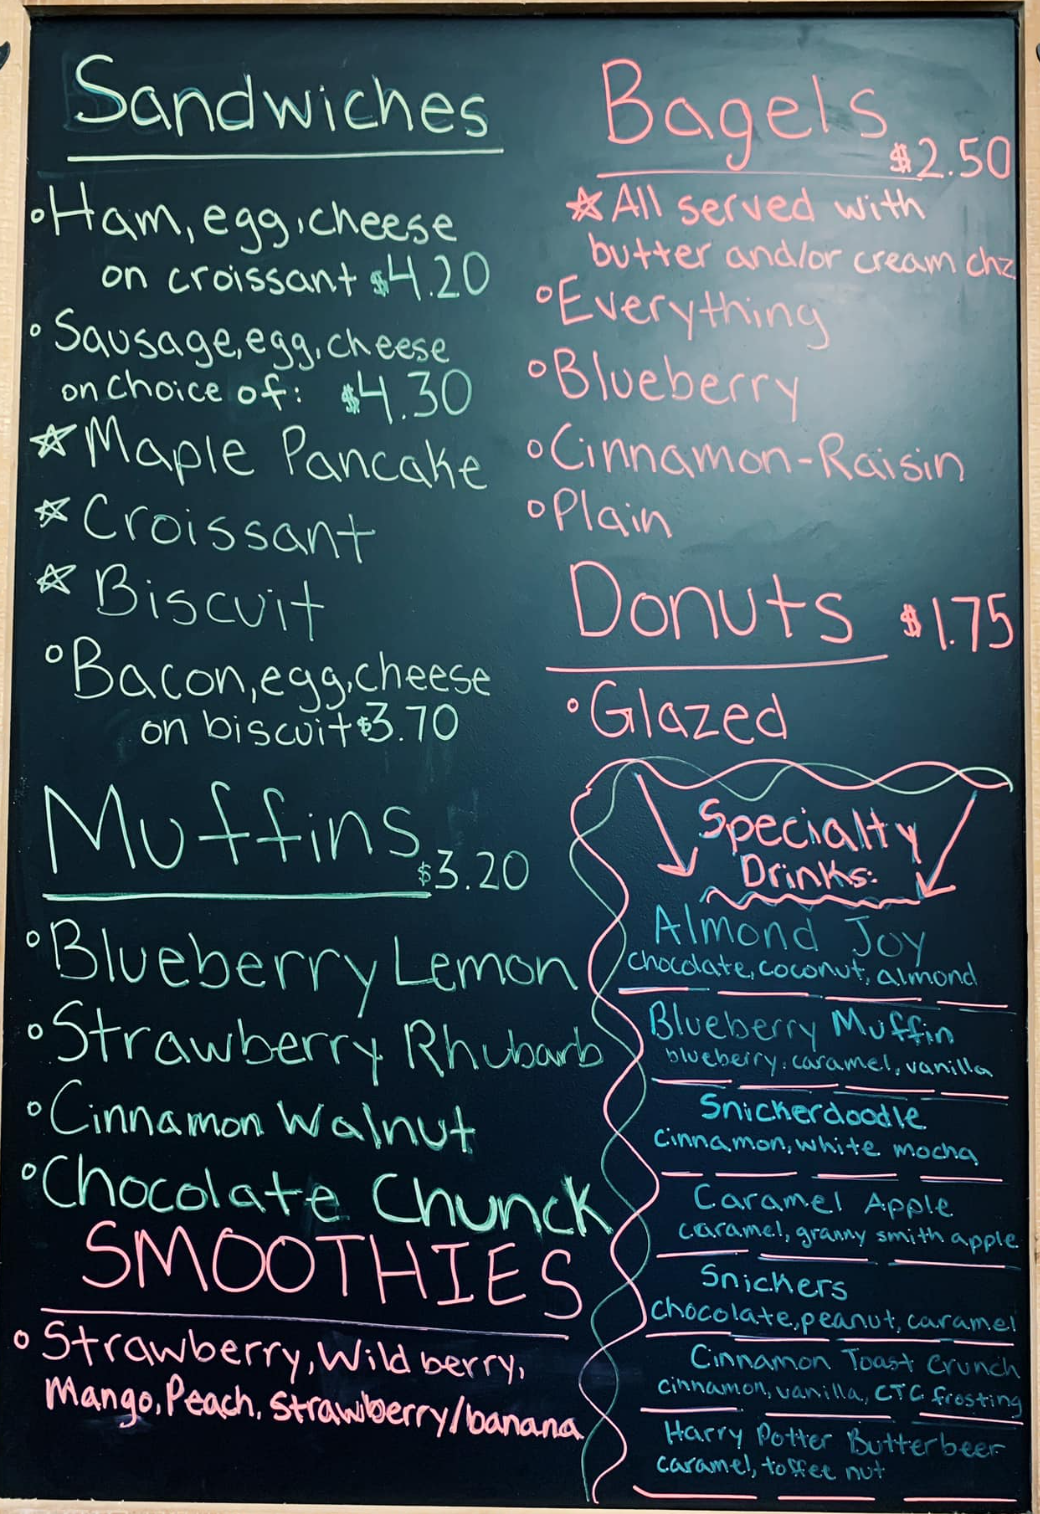 Sandwiches
Ham, egg, cheese
on croissant $4.20
Sausage, egg, cheese
on choice of: $4.30
Maple Pancake
Croissant
Biscuit
Bacon, egg, cheese
on biscuit $3.70
Muffins $3.20
Blueberry Lemon
Strawberry Rhubarb
Cinnamon Walnut
Chocolate Chunck
SMOOTHIES
Strawberry, Wild berry,
Mango, Peach, strawberry/banana
Bagels $2.50
All served with
butter and/or cream chz
Everything
Blueberry
Cinnamon-Raisin
Plain
Donuts $1.75
Glazed
Specialty
Drinks:
Almond Joy
chocolate, coconut, almond
Blueberry Muffin
blueberry, caramel, vanilla
Snickerdoodle
cinnamon, white mocha
Caramel Apple
caramel, granny smith apple
Snickers
chocolate, peanut, caramel
Cinnamon Toast Crunch
cinnamon, vanilla, CTC frosting
Harry Potter Butterbeer
caramel, toffee nut